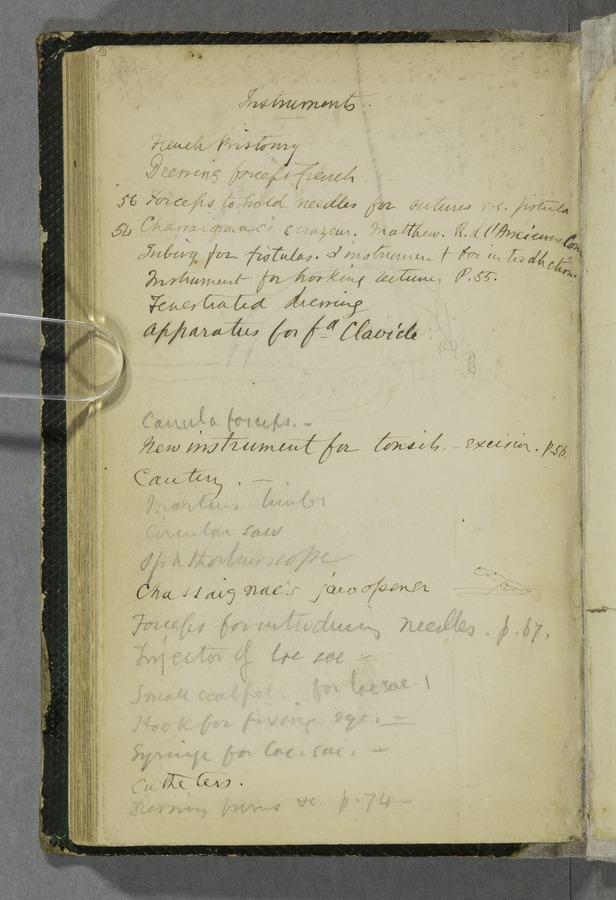 Instruments.
French Bistoury
Dressing forceps French
56 Forceps to hold needles for sutures fistula
54 Chassaignac's ecraseur. Matthew. R. de l'Ancienne Com
Tubing for fistulas. & instrument for
Instrument for hooking P. 55.
Fenestrated dressing
Apparatus for fd Clavicle
Canula forceps. -
New instrument for tonsils - excision. p. 56.
Cautery. -
Circular saw
Ophthalmoscope
Chassaignac's jaw opener
Forceps for introducing needles. p. 67.
Injector of lac sac -
Small scalpel. for lac sac.
Hook for fixing eye. -
Syringe for lac. sac. -
Catheters.
Dressing burns &c. p. 74 -